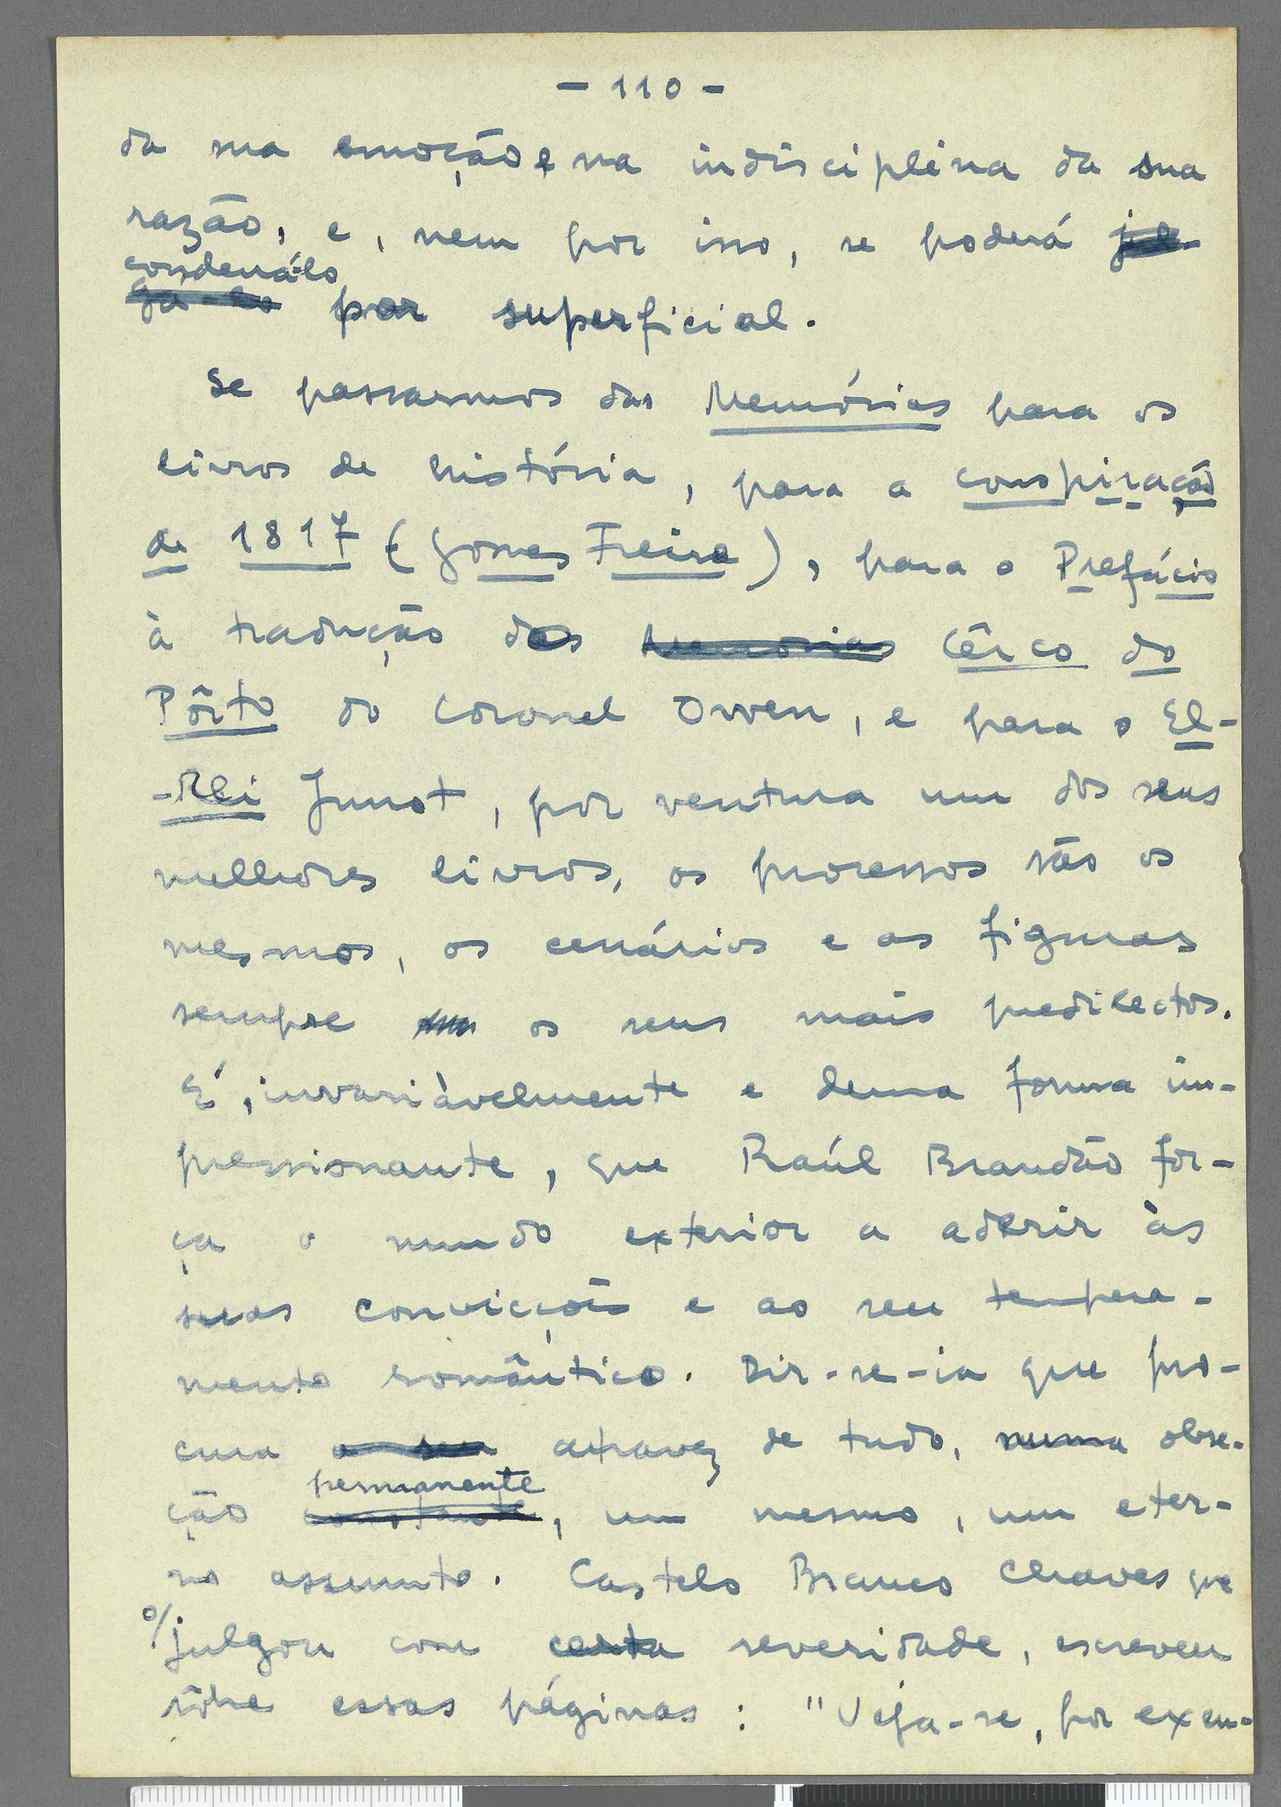 - 110 -
da sua emoção e na indisciplina da sua
razão, e, nem por isso, se poderá jul-
condená-lo
gá-lo por superficial.
Se passarmos das Memórias para os
livros de história, para a conspiração
de 1817 (Gomes Freire), para o Prefácio
à tradução do Memorias Cêrco do
Pôrto do coronel Owen, e para o El-
-Rei Junot, por ventura um dos seus
melhores livros, os processos são os
mesmos, os cenários e as figuras
sempre os seus mais predilectos.
É, invariàvelmente e duma forma im-
pressionante, que Raúl Brandão for-
ça o mundo exterior a aderir às
suas convicções e ao seu tempera-
mento romântico. Dir-se-ia que pro-
cura o seu atravez de tudo, numa obse-
permanente
ção constante, um mesmo, um eter-
no assunto. Castelo Branco Chaves que
o/julgou com certa severidade, escreveu
sôbre essas páginas: "Veja-se, por exem-